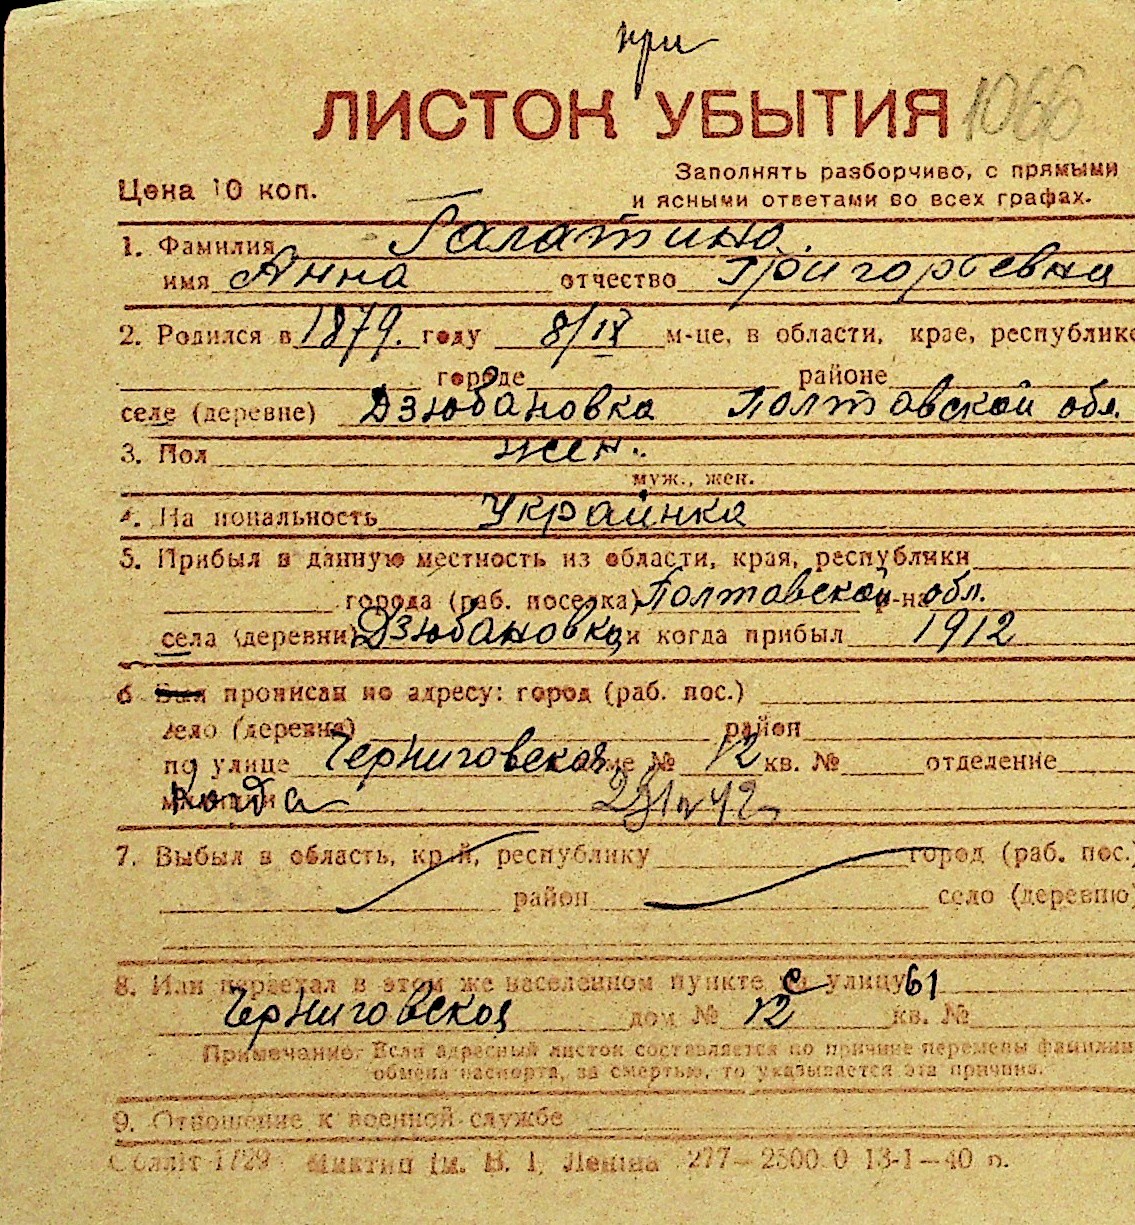 при
ЛИСТОК УБЫТИЯ 1066
Цена 10 коп.
Заполнять разборчиво, с прямыми
и ясными ответами во всех графах.
1. Фамилия Галатина.
имя Анна отчество Григорьевна
2. Родился в 1879. году 8/IX м-це, в области, крае, республике
городе районе
селе (деревне) Дзюбановка Полтавской обл.
3. Пол жен.
муж., жен.
4. На иональность Украинка
5. Прибыл в данную местность из области, края, республики
города (раб. поселка) Полтавской р-на обл.
села (деревни) Дзюбановка и когда прибыл 1912
6 Был прописан по адресу: город (раб. пос.)
село (деревня) район
по улице Черниговская доме № 12 кв. № отделение
милиции
7. Выбыл в область, край, республику город (раб. пос.)
район село (деревню)
8. Или переехал в этом же населенном пункте с улицу 61
Черниговская дом № 12 кв. №
Примечание: Если адресный листок составляется по причине перемены фамилии
обмена паспорта, за смертью, то указывается эта причина.
9. Отношение к военной службе
Обллiт 1729 Миктип iм. В. I. Ленiна 277—2500 0 13-1—40 р.